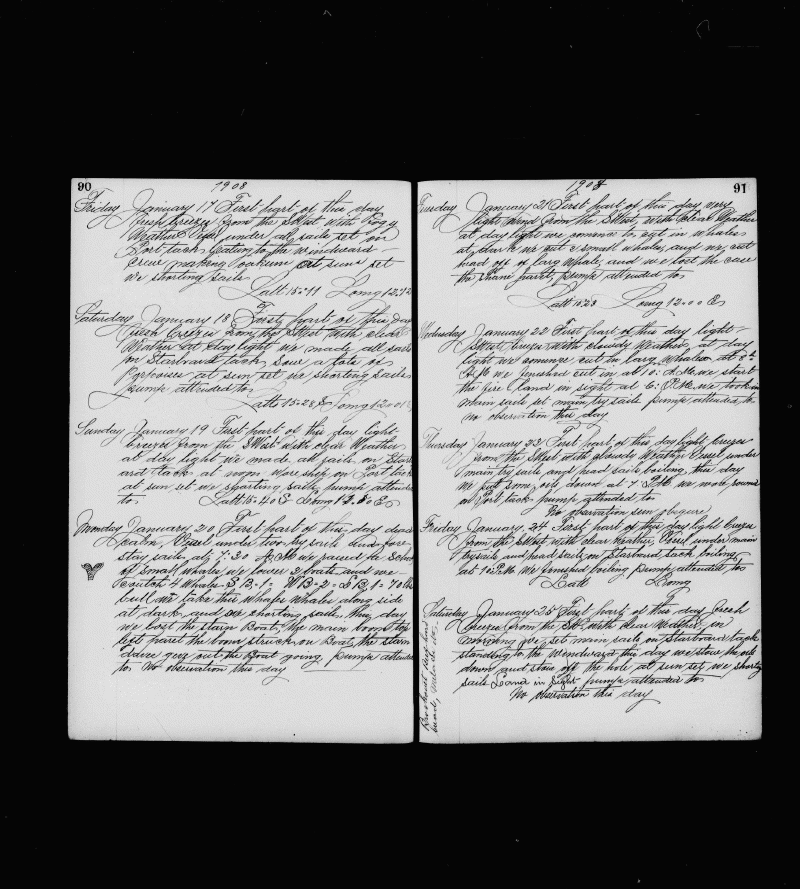 90
1908
Friday January 17 First part of this day
fresh breezes from the SWest with Fogy
Weather Vesel under all sails set on
Port tack beating to the windward
Crew making oakum at suns set
we shorting sails
Latt 15-11 Long 12.32
Saturday January 18 First part of this day
fresh breezes from the SWest with clear
Weather at day light we made all sails
on Starboard tack Saw a lots of
Porposes at sun set we shorting sails
pump attended to
Latt 15-28 S Long 12.01
Sunday January 19 Fast part of this day light
breezes from the SWest with clear Weather
at day light we made all sails on Starb
ard tack at noon worship on Port tack
at sun set we shorting sails pump attended
to Latt 15-40 S Long 12. E
Monday January 20 First part of this day dead
calm, Vesel under two try sails and fore
stay sails at 7-30 A.M we raised to School
of Small whales we lower 3 boats and we
Coutch 4 Whales S B-1= W B-2= L B.1=70 bbs
bull we take this whales along side
at dark and we shorting sails, this day
we lost the starn Boat, the main boom top
lift paret the boom struck on Boat, the starn
davie gees out the Boat going, pump attended
to No observation this day
91
1908
Tuesday January 21 First part of this day very
light wind from the SWest, with clear Weather
at day light we comence to cut in whales
at dark we cut 2 small whales, and we cut
head off of larg whale, and we lost the case
the Chane parets, pump attended to
Latt 15.28 Long 12.00 E
Wednesday January 22 First part of this day light
SWest breeze with cloudy Weather, at day
light we comence cut to larg whale at 9 h
A.M we fineshed cut in at 10. A.M. we start
the fire, Land in sight at 6. P.M. we took in
main sails set main try sails pump attended to
No observation this day
Thursday January 23 First part of this day light breezes
from the SWest with gloudy Weather Vesel under
main try sails and head sails boiling, this day
we put some oil down at 7 P.M. we wore round
on Port tack pump attended to
No observation sun obsqure
Friday January, 24 First, part of this day light breeze
from the SWest with clear Weather, Vesel under main
try sails and head sails on Starboard tack boiling
at 10 P.M. we fineshed boiling Pump attended to
Latt Long
Saturday January 25 First part of this day fresh
breezes from the SW. with clear Weather, in
morning we set main sails on Starboard tack
standing to the Windward this day we stow the oil
down and stow off the hole at sun set we shorting
sails Land in sight pump attended to
No observation this day